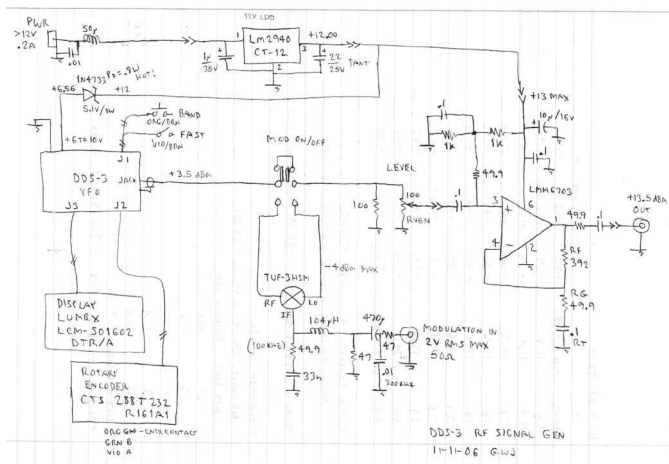 PWR
>12V
.2A
.01
50µ
12V LDO
1
LM2940
CT-12
3
2
+12.00
1µ
35V
22
25V
TANT
1N4733 PD=.8W
HOT!
+6.56
+12
5.1V/1W
+6 TO 10V
BAND
ORG/BRN
FAST
VIO/BRN
J1
DDS-3
VFO
JACK
J3
J2
+3.5 dBm
MOD ON/OFF
LEVEL
100
100
RVEN
.1
.1
1K
1K
49.9
+13 MAX
10µ/16V
.1
LMH6703
3
+
6
1
4
-
2
49.9
.1
+13.5dBm
OUT
RF
392
RG
49.9
.1
RT
-4dBm MAX
TUF-3HSM
RF
LO
IF
(100KHZ)
49.9
33n
104µH
47
470µ
47
.01
300KHZ
MODULATION IN
2V RMS MAX
50Ω
DISPLAY
LUMEX
LCM-S01602
DTR/A
ROTARY
ENCODER
CTS 288T232
R161A1
ORG GND-CNTR CONTACT
GRN B
VIO A
DDS-3 RF SIGNAL GEN
11-11-06 GWJ